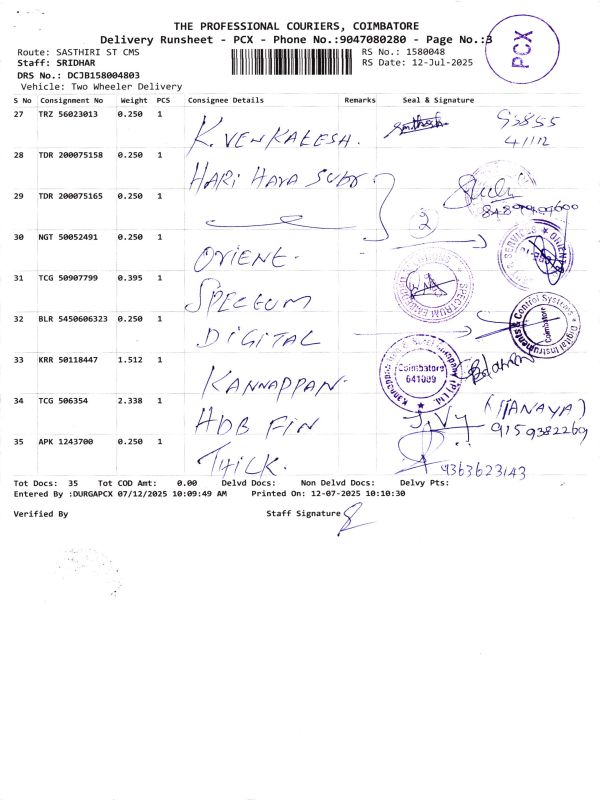 THE PROFESSIONAL COURIERS, COIMBATORE
Delivery Runsheet - PCX - Phone No.:9047080280 - Page No.:3
PCX
Route: SASTHIRI ST CMS
RS No.: 1580048
Staff: SRIDHAR
RS Date: 12-Jul-2025
DRS No.: DCJB158004803
Vehicle: Two Wheeler Delivery
S No Consignment No Weight PCS Consignee Details Remarks Seal & Signature
27 TRZ 56023013 0.250 1 K. VENKALESH.
28 TDR 200075158 0.250 1 HARI HARA SUBR
29 TDR 200075165 0.250 1 2
30 NGT 50052491 0.250 1 ORIENE.
31 TCG 50907799 0.395 1 SPECLUM
SPECTRUM
32 BLR 5450606323 0.250 1 DIGITAL
Digital Instruments & Control Systems Coimbatore
33 KRR 50118447 1.512 1 KANNAPPAN.
Coimbatore 641009
34 TCG 506354 2.338 1 HDB FIN
9159382269
35 APK 1243700 0.250 1 THICK.
9363623143
Tot Docs: 35 Tot COD Amt: 0.00 Delvd Docs: Non Delvd Docs: Delvy Pts:
Entered By :DURGAPCX 07/12/2025 10:09:49 AM Printed On: 12-07-2025 10:10:30
Verified By Staff Signature